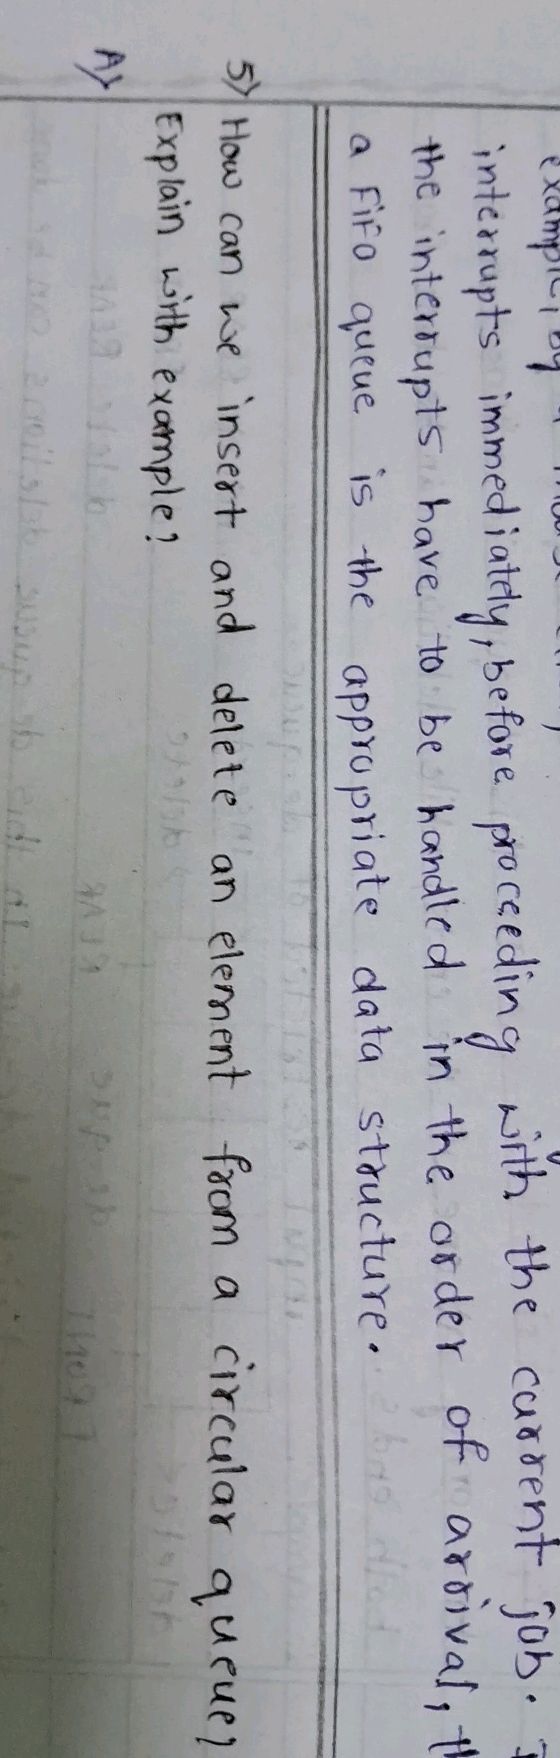 interrupts immediately, before proceeding with the current job.
the interrupts have to be handled in the order of arrival,
a FIFO queue is the appropriate data structure.
5) How can we insert and delete an element from a circular queue?
Explain with example?
A)